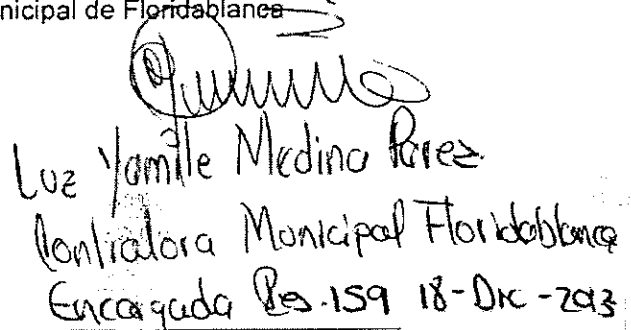 nicipal de Floridablanca
Luz Yamile Medina Perez
Contralora Municipal Floridablanca
Encargada Res.159 18-Dic-2013